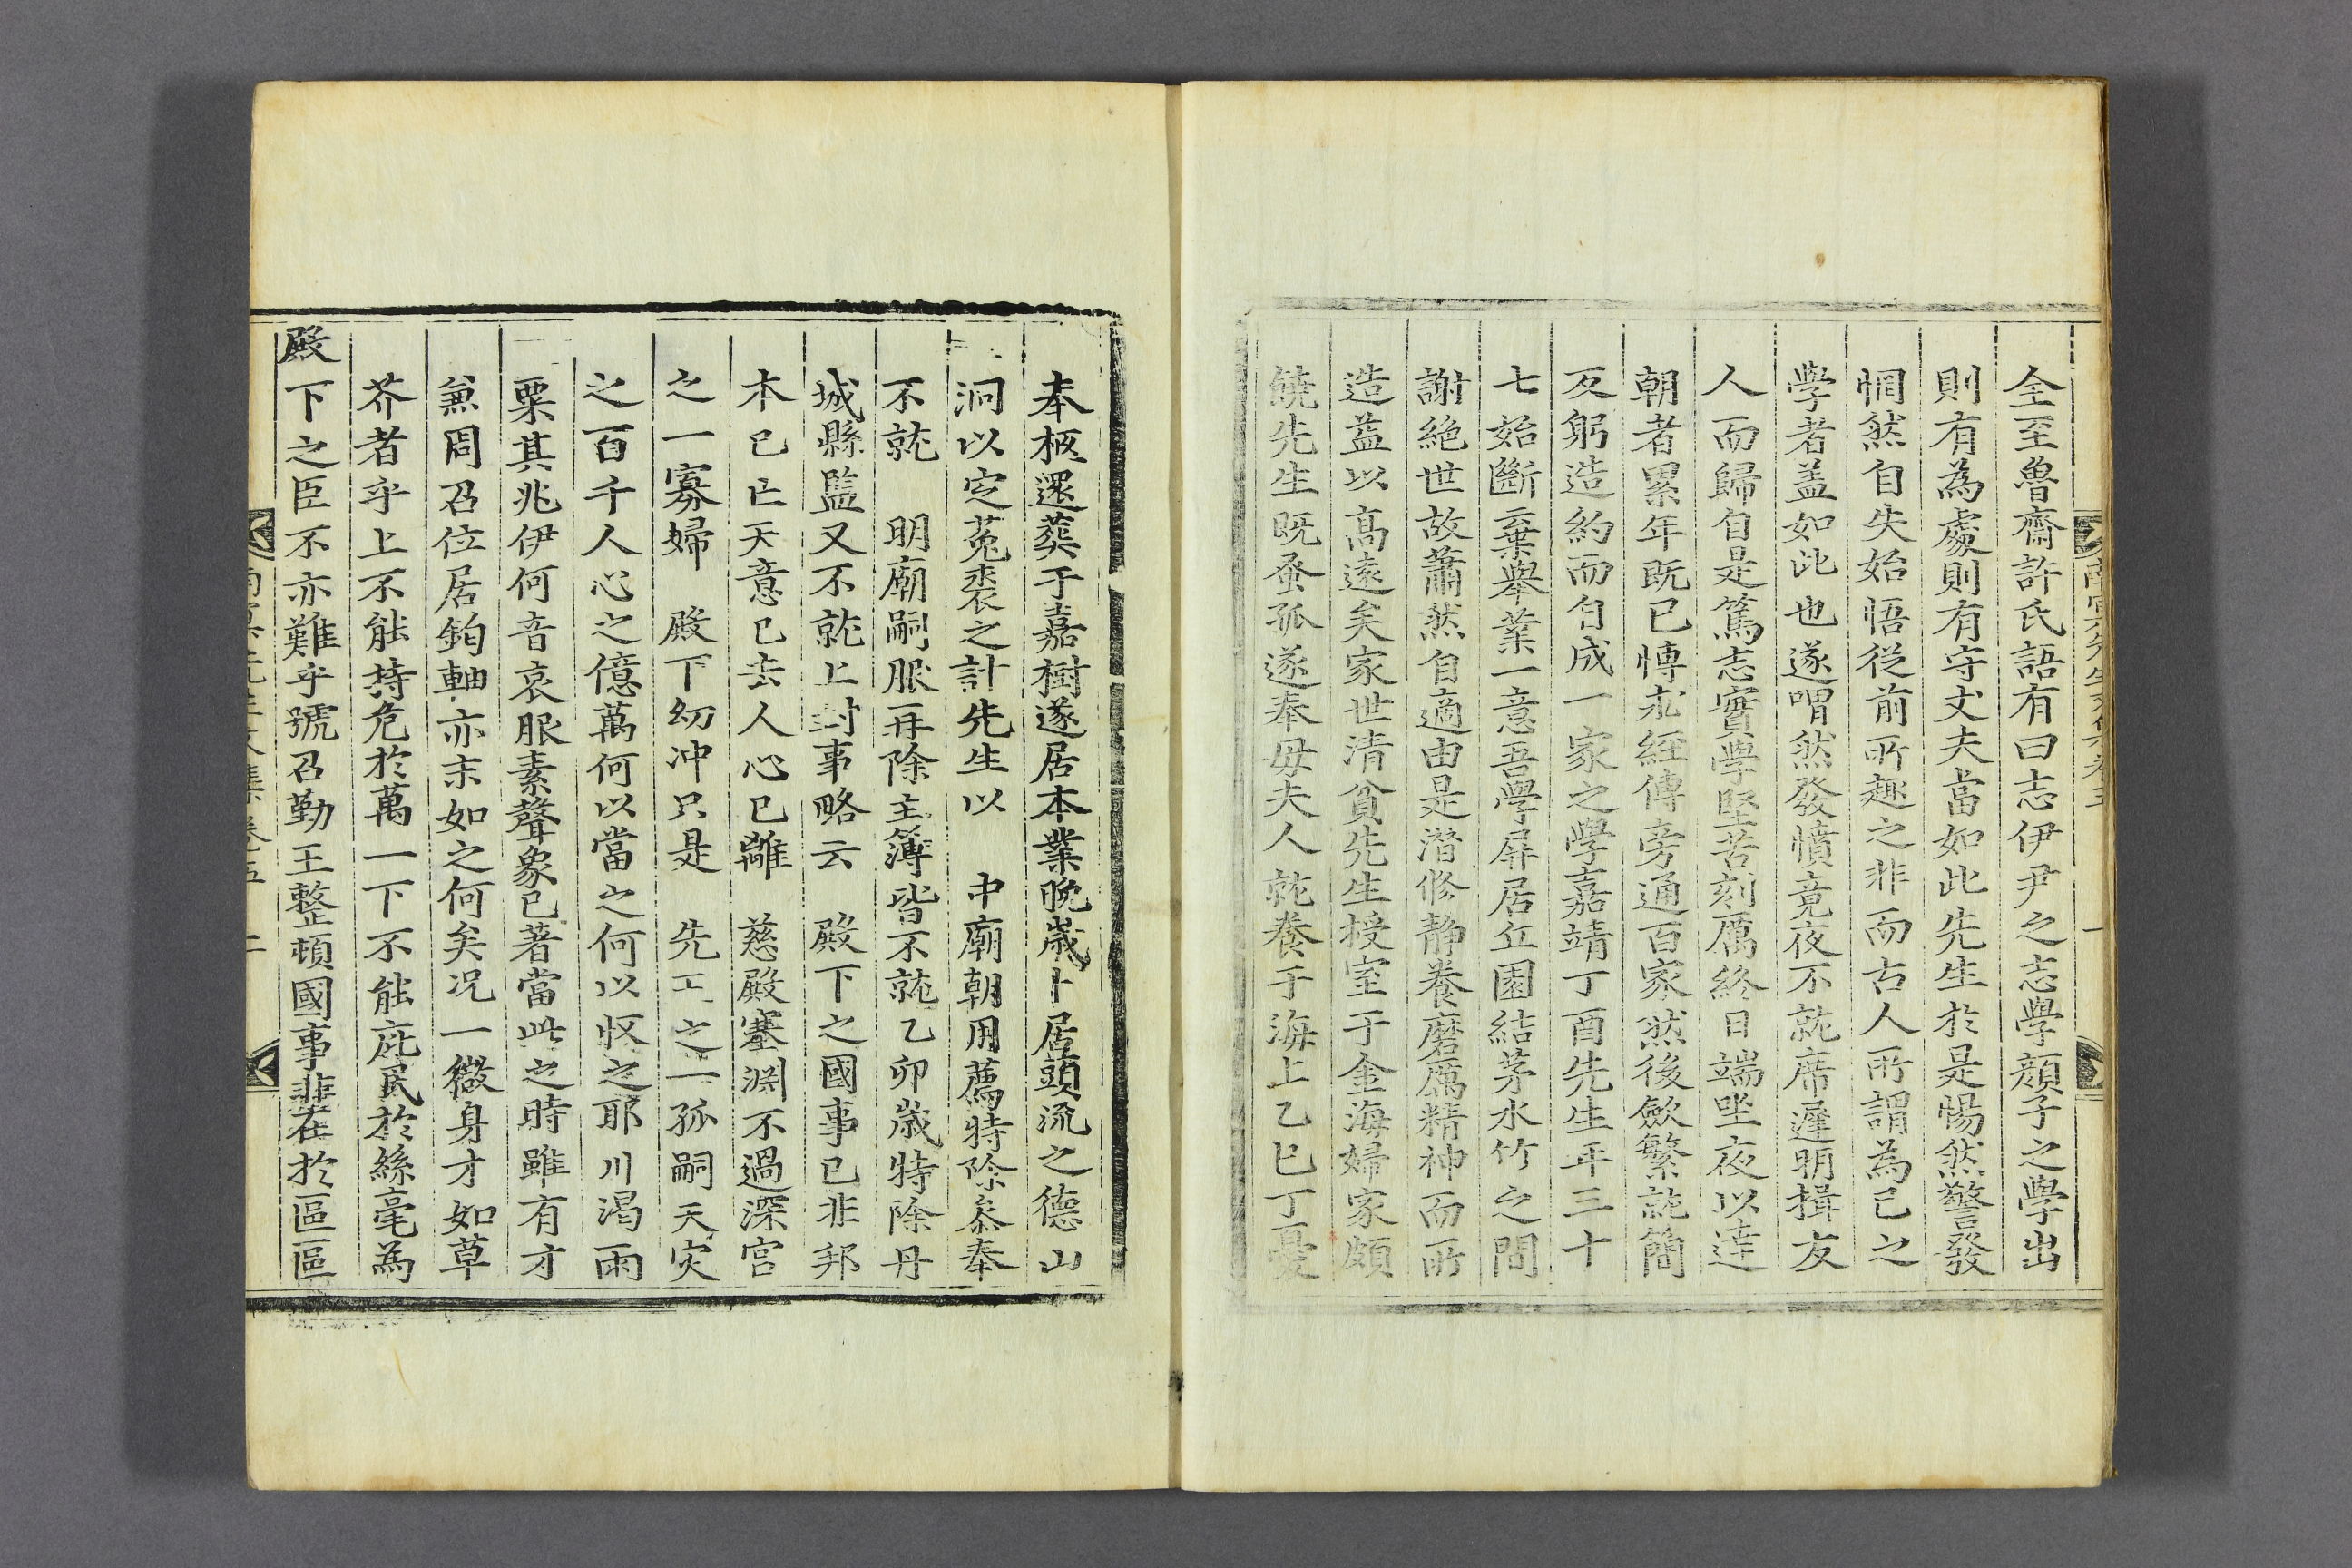 全至魯齋許氏語有曰志伊尹之志學顔子之學出
則有為處則有守丈夫當如此先生於是惕然警發
惘然自失始悟從前所趣之非而古人所謂為己之
學者盖如此也遂喟然發憤竟夜不就席遲明揖友
人而歸自是篤志實學堅苦刻厲終日端坐夜以達
朝者累年既已博求經傳旁通百家然後歛繁就簡
反躬造約而自成一家之學嘉靖丁酉先生年三十
七始斷棄舉業一意吾學屏居丘園結茅水竹之間
謝絶世故蕭然自適由是潜修静養磨厲精神而所
造益以高遠矣家世清貧先生授室于金海婦家頗
饒先生既蚤孤遂奉毋夫人就養于海上乙巳丁憂
奉柩還葬于嘉樹遂居本業晩歳卜居頭流之德山
洞以定菟裘之計先生以 中廟朝用薦特除叅奉
不就 明廟嗣服再除主簿皆不就乙卯歳特除丹
城縣監又不就上封事略云 殿下之國事已非邦
本已亡天意已去人心已離 慈殿塞淵不過深宫
之一寡婦 殿下幼冲只是 先王之一孤嗣天灾
之百千人心之億萬何以當之何以收之耶川渴雨
粟其兆伊何音哀服素聲象已著當此之時雖有才
兼周召位居鈞軸亦末如之何矣况一微身才如草
芥者乎上不能持危於萬一下不能庇民於絲毫為
殿下之臣不亦難乎號召勤王整頓國事非在於區區
南冥先生文集卷五 二